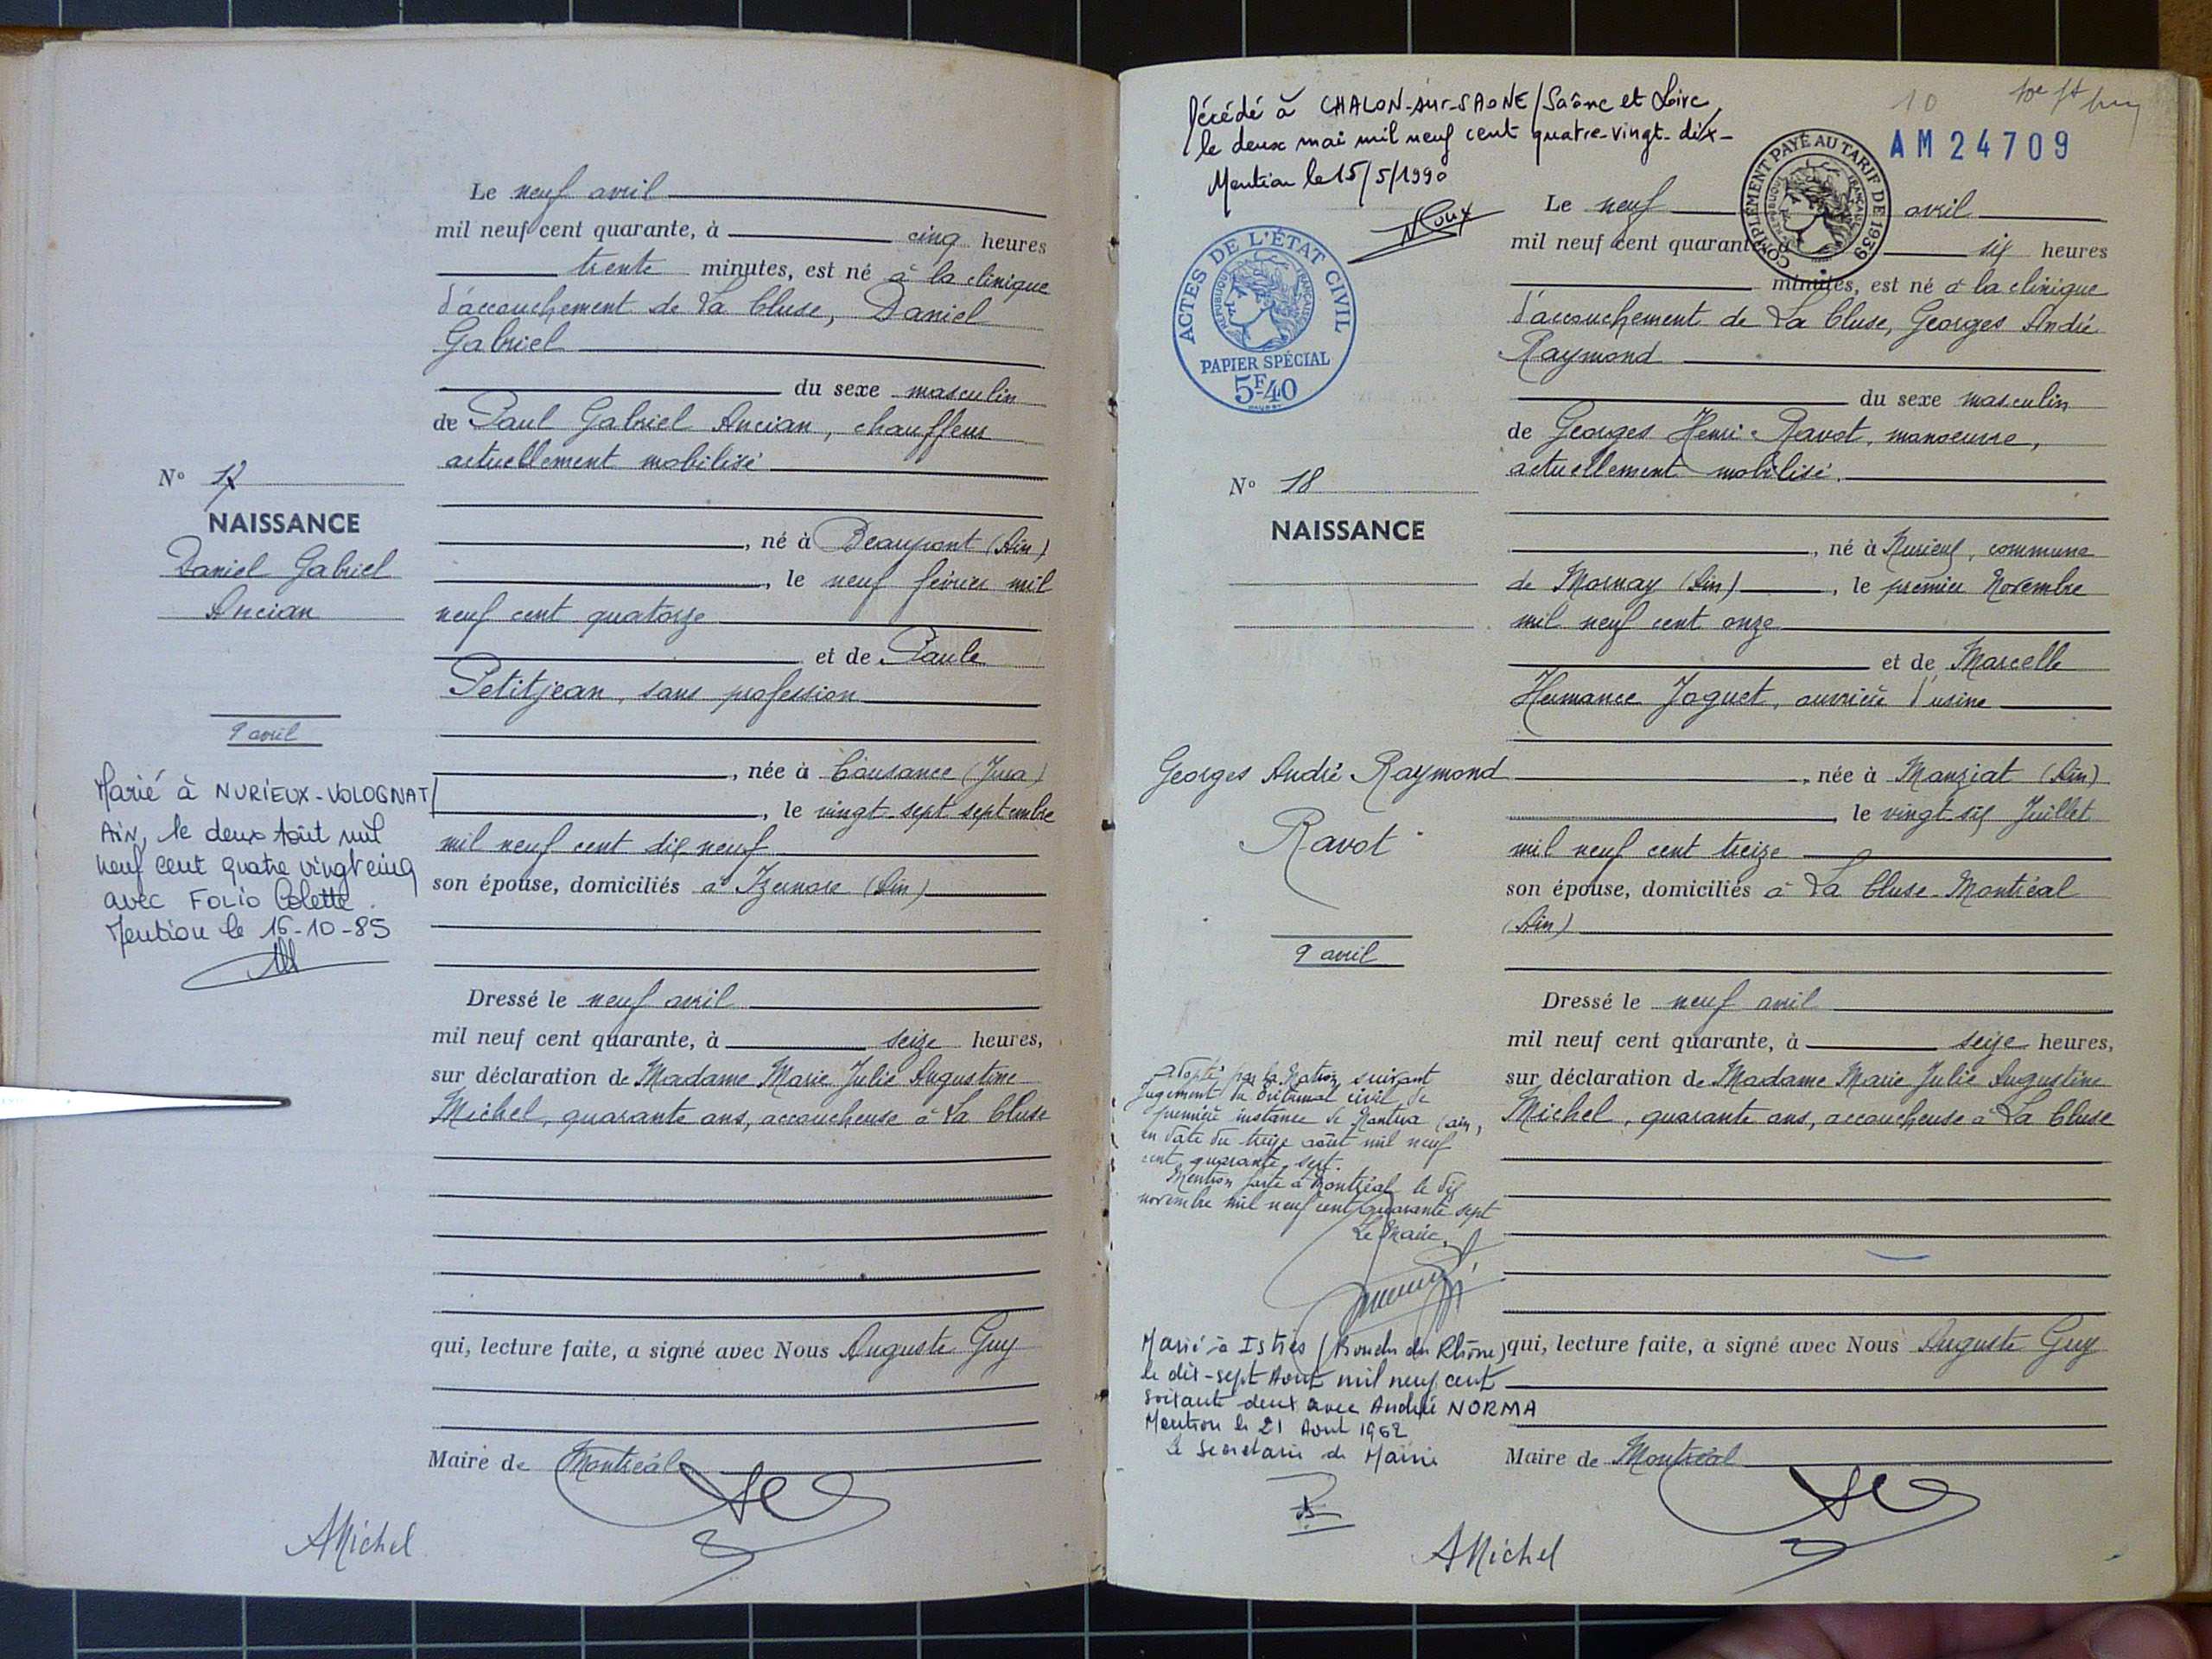 Le neuf avril
mil neuf cent quarante, à cinq heures
trente minutes, est né à la clinique
d'accouchement de La Cluse, Daniel
Gabriel
du sexe masculin
de Paul Gabriel Ancian, chauffeur
actuellement mobilisé
, né à Beaupont (Ain)
, le neuf février mil
neuf cent quatorze
et de Paule
Petitjean, sans profession
, née à Cousance (Jura)
, le vingt-sept septembre
mil neuf cent dix neuf
son épouse, domiciliés à Izernore (Ain)
Dressé le neuf avril
mil neuf cent quarante, à seize heures,
sur déclaration de Madame Marie Julie Augustine
Michel, quarante ans, accoucheuse à La Cluse
qui, lecture faite, a signé avec Nous Auguste Guy
Maire de Montréal
AMichel
N° 17
NAISSANCE
Daniel Gabriel
Ancian
9 avril
Marié à NURIEUX-VOLOGNAT/
AIN, le deux Août mil
neuf cent quatre vingt cinq
avec FOLIO Colette.
Mention le 16-10-85
Décédé à CHALON-sur-SAONE/Saône et Loire,
le deux mai mil neuf cent quatre-vingt-dix-
Mention le 15/5/1990
Roux
10
AM 24709
COMPLÉMENT PAYÉ AU TARIF DE 1939
RÉPUBLIQUE FRANÇAISE
ACTES DE L'ÉTAT CIVIL
RÉPUBLIQUE FRANÇAISE
PAPIER SPÉCIAL
5F-40
Le neuf avril
mil neuf cent quarante, à six heures
minutes, est né à la clinique
d'accouchement de La Cluse, Georges André
Raymond
du sexe masculin
de Georges Henri Ravot, manoeuvre,
actuellement mobilisé.
, né à Nurieux, commune
de Mornay (Ain), le premier Novembre
mil neuf cent onze
et de Marcelle
Hermance Joguet, ouvrière d'usine
, née à Manziat (Ain)
, le vingt-six Juillet
mil neuf cent treize
son épouse, domiciliés à La Cluse-Montréal
(Ain)
Dressé le neuf avril
mil neuf cent quarante, à seize heures,
sur déclaration de Madame Marie Julie Augustine
Michel, quarante ans, accoucheuse à La Cluse
qui, lecture faite, a signé avec Nous Auguste Guy
Maire de Montréal
AMichel
N° 18
NAISSANCE
Georges André Raymond
Ravot
9 avril
adopté par la Nation suivant
jugement du tribunal civil de
première instance de Nantua (ain,
en date du treize août mil neuf
cent quarante sept.
Mention faite à Montréal le dix
novembre mil neuf cent quarante sept
Le Maire,
Marié à Istres (Bouches du Rhône)
le dix-sept Août mil neuf cent
soixante deux avec Andrée NORMA
Mention le 21 Aout 1962
Le Secrétaire de Mairie